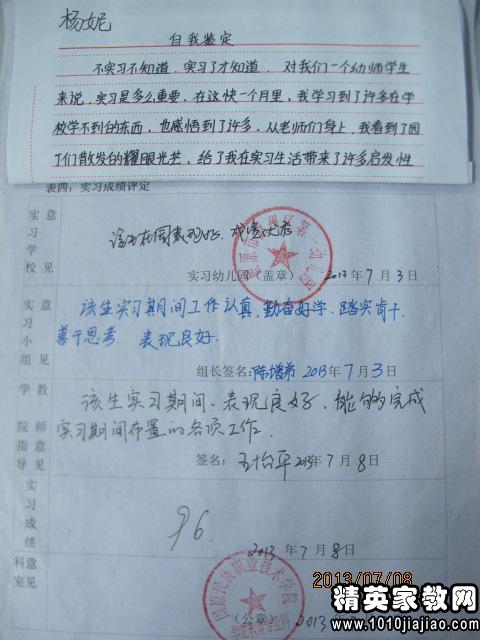 杨妮
自我鉴定
不实习不知道，实习了才知道，对我们一个幼师学生
来说，实习是多么重要，在这快一个月里，我学习到了许多在学
校学不到的东西，也感悟到了许多，从老师们身上，我看到了园
丁们散发的耀眼光芒，给了我在实习生活带来了许多启发性
表四：实习成绩评定
实习学校意见
该生在园表现好，成绩优秀
实习幼儿园（盖章） 2013年7月3日
实习小组意见
该生实习期间工作认真，勤奋好学，踏实肯干，
善于思考，表现良好。
组长签名： 2013年7月3日
学院指导教师意见
该生实习期间、表现良好，能够完成
实习期间布置的各项工作。
签名： 2013年7月8日
实习成绩
96.
2013年7月8日
科室意见
职业技术学院
2013/07/08
（公章） 2013
精英家教网
www.1010jiajiao.com